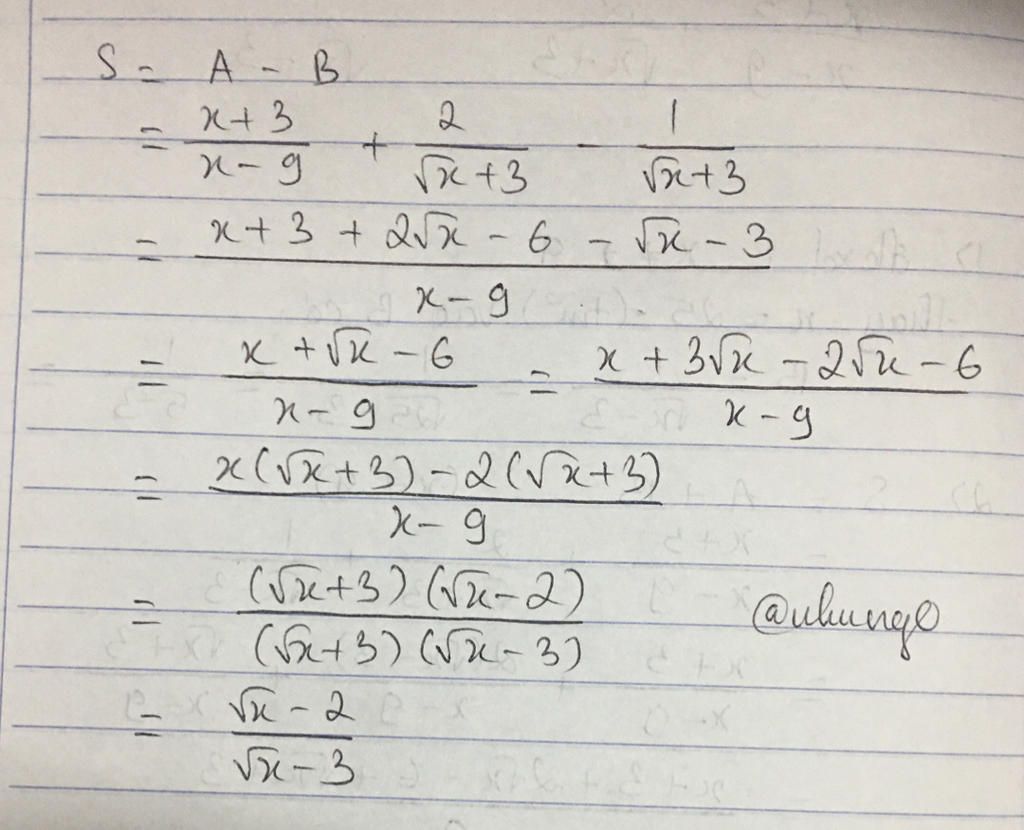 S = A - B
= \frac{x+3}{x-9} + \frac{2}{\sqrt{x}+3} - \frac{1}{\sqrt{x}+3}
= \frac{x+3+2\sqrt{x}-6-\sqrt{x}-3}{x-9}
= \frac{x+\sqrt{x}-6}{x-9} = \frac{x+3\sqrt{x}-2\sqrt{x}-6}{x-9}
= \frac{x(\sqrt{x}+3)-2(\sqrt{x}+3)}{x-9}
= \frac{(\sqrt{x}+3)(\sqrt{x}-2)}{(\sqrt{x}+3)(\sqrt{x}-3)}
= \frac{\sqrt{x}-2}{\sqrt{x}-3}